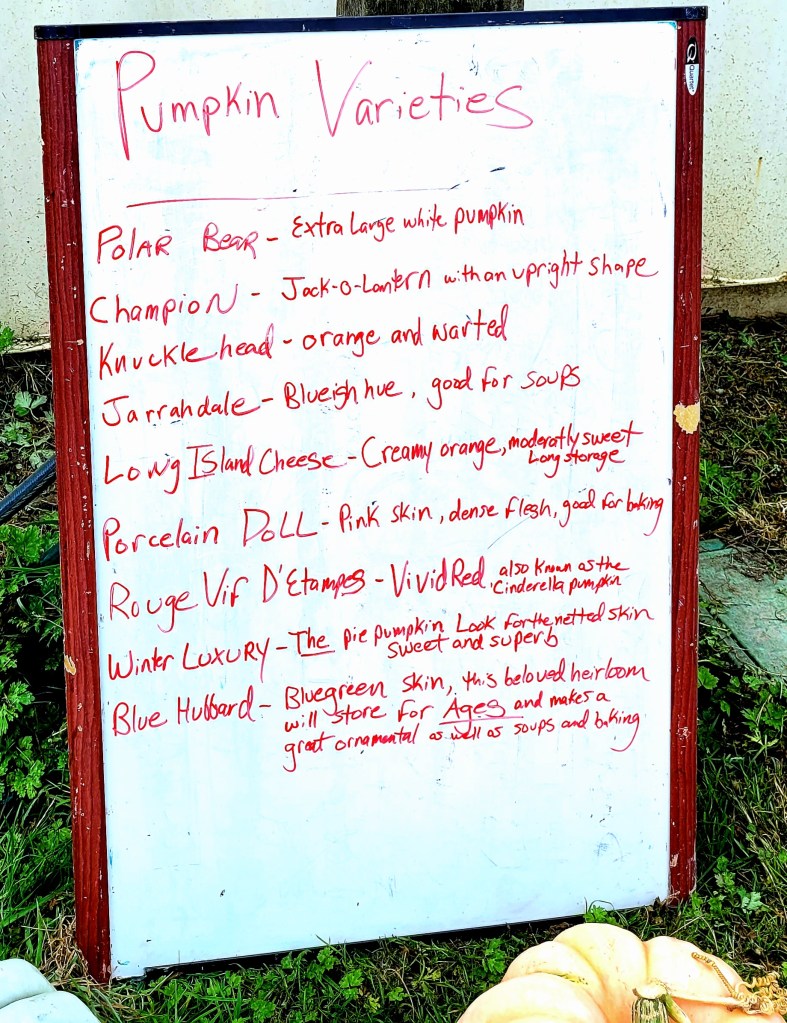 Pumpkin Varieties
Quartet
Polar Bear - Extra Large white pumpkin
Champion - Jack-o-Lantern with an upright shape
Knucklehead - orange and warted
Jarrahdale - Blueish hue, good for soups
Long Island Cheese - Creamy orange, moderatly sweet
Long storage
Porcelain Doll - Pink skin, dense flesh, good for baking
Rouge Vif D'Etampes - Vivid Red, also known as the
Cinderella pumpkin
Winter Luxury - The pie pumpkin Look for the netted skin
sweet and superb
Blue Hubbard - Bluegreen skin, this beloved heirloom
will store for Ages and makes a
great ornamental as well as soups and baking